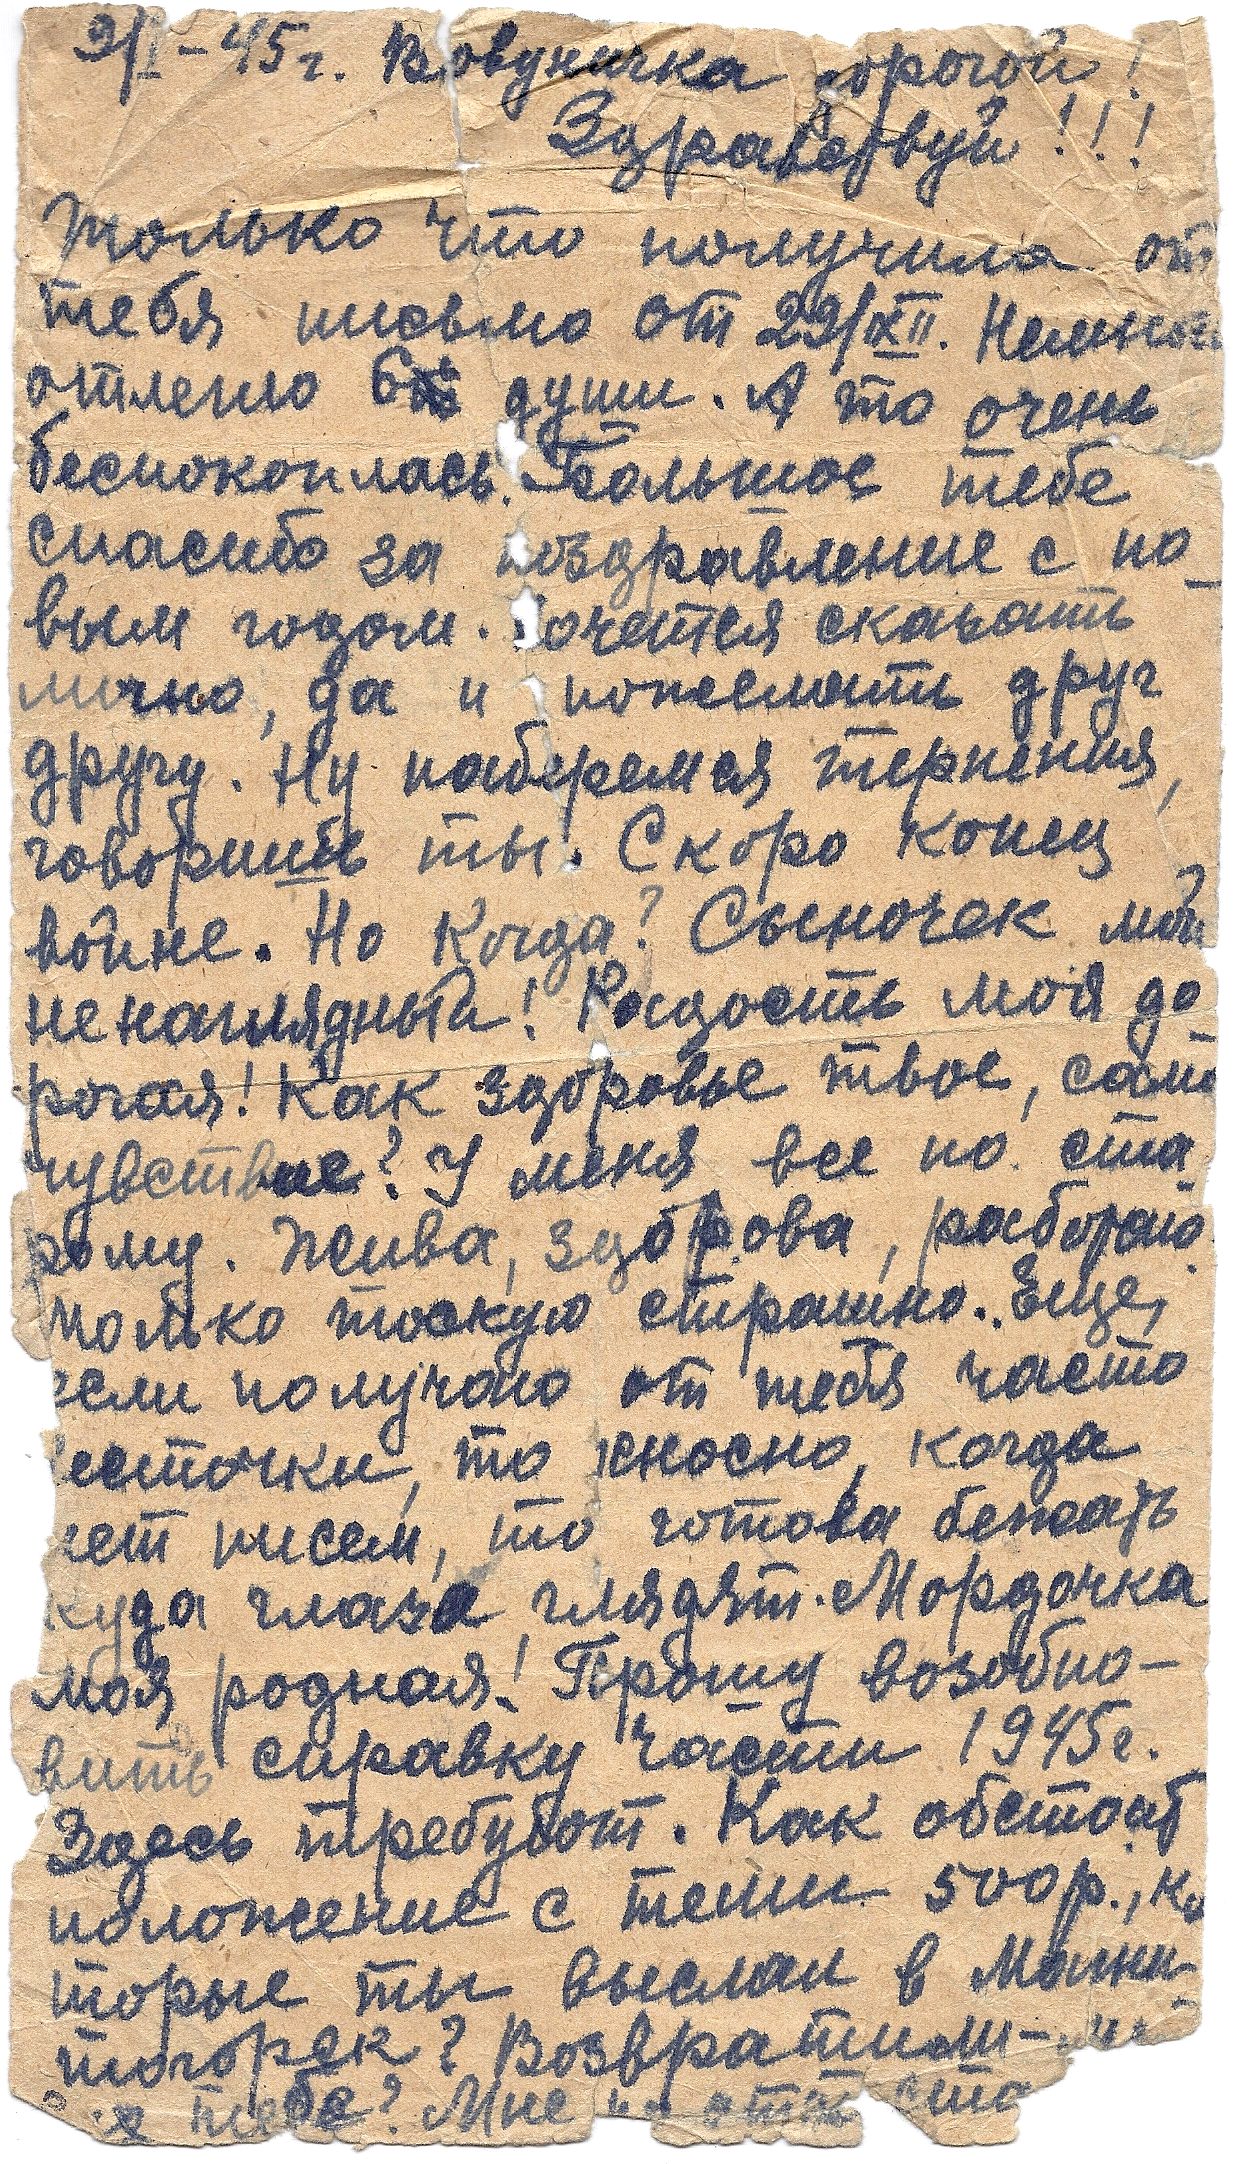 9/I-45г. Вовуничка дорогой!
Здравствуй!!!
Только что получила от
тебя письмо от 29/XII. Немного
отлегло от души. А то очень
беспокоилась. Большое тебе
спасибо за поздравление с но-
вым годом. Хочется сказать
лично, да и пожелать друг
другу. Ну наберемся терпения,
говоришь ты. Скоро конец
войне. Но когда? Сыночек мой
ненаглядный! Радость моя до
рогая! Как здоровье твое, само
чувствие? У меня все по ста
рому. Жива, здорова, работаю.
Только тоскую страшно. Еще,
если получаю от тебя часто
весточки, то сносно, когда
нет писем, то готова бежать
куда глаза глядят. Мордочка
моя родная! Прошу возобно-
вить справку части 1945г.
Здесь требуют. Как обстоит
положение с теми 500р., ко
торые ты выслал в Магни
тогорск? Возвратили
тебе? Мне